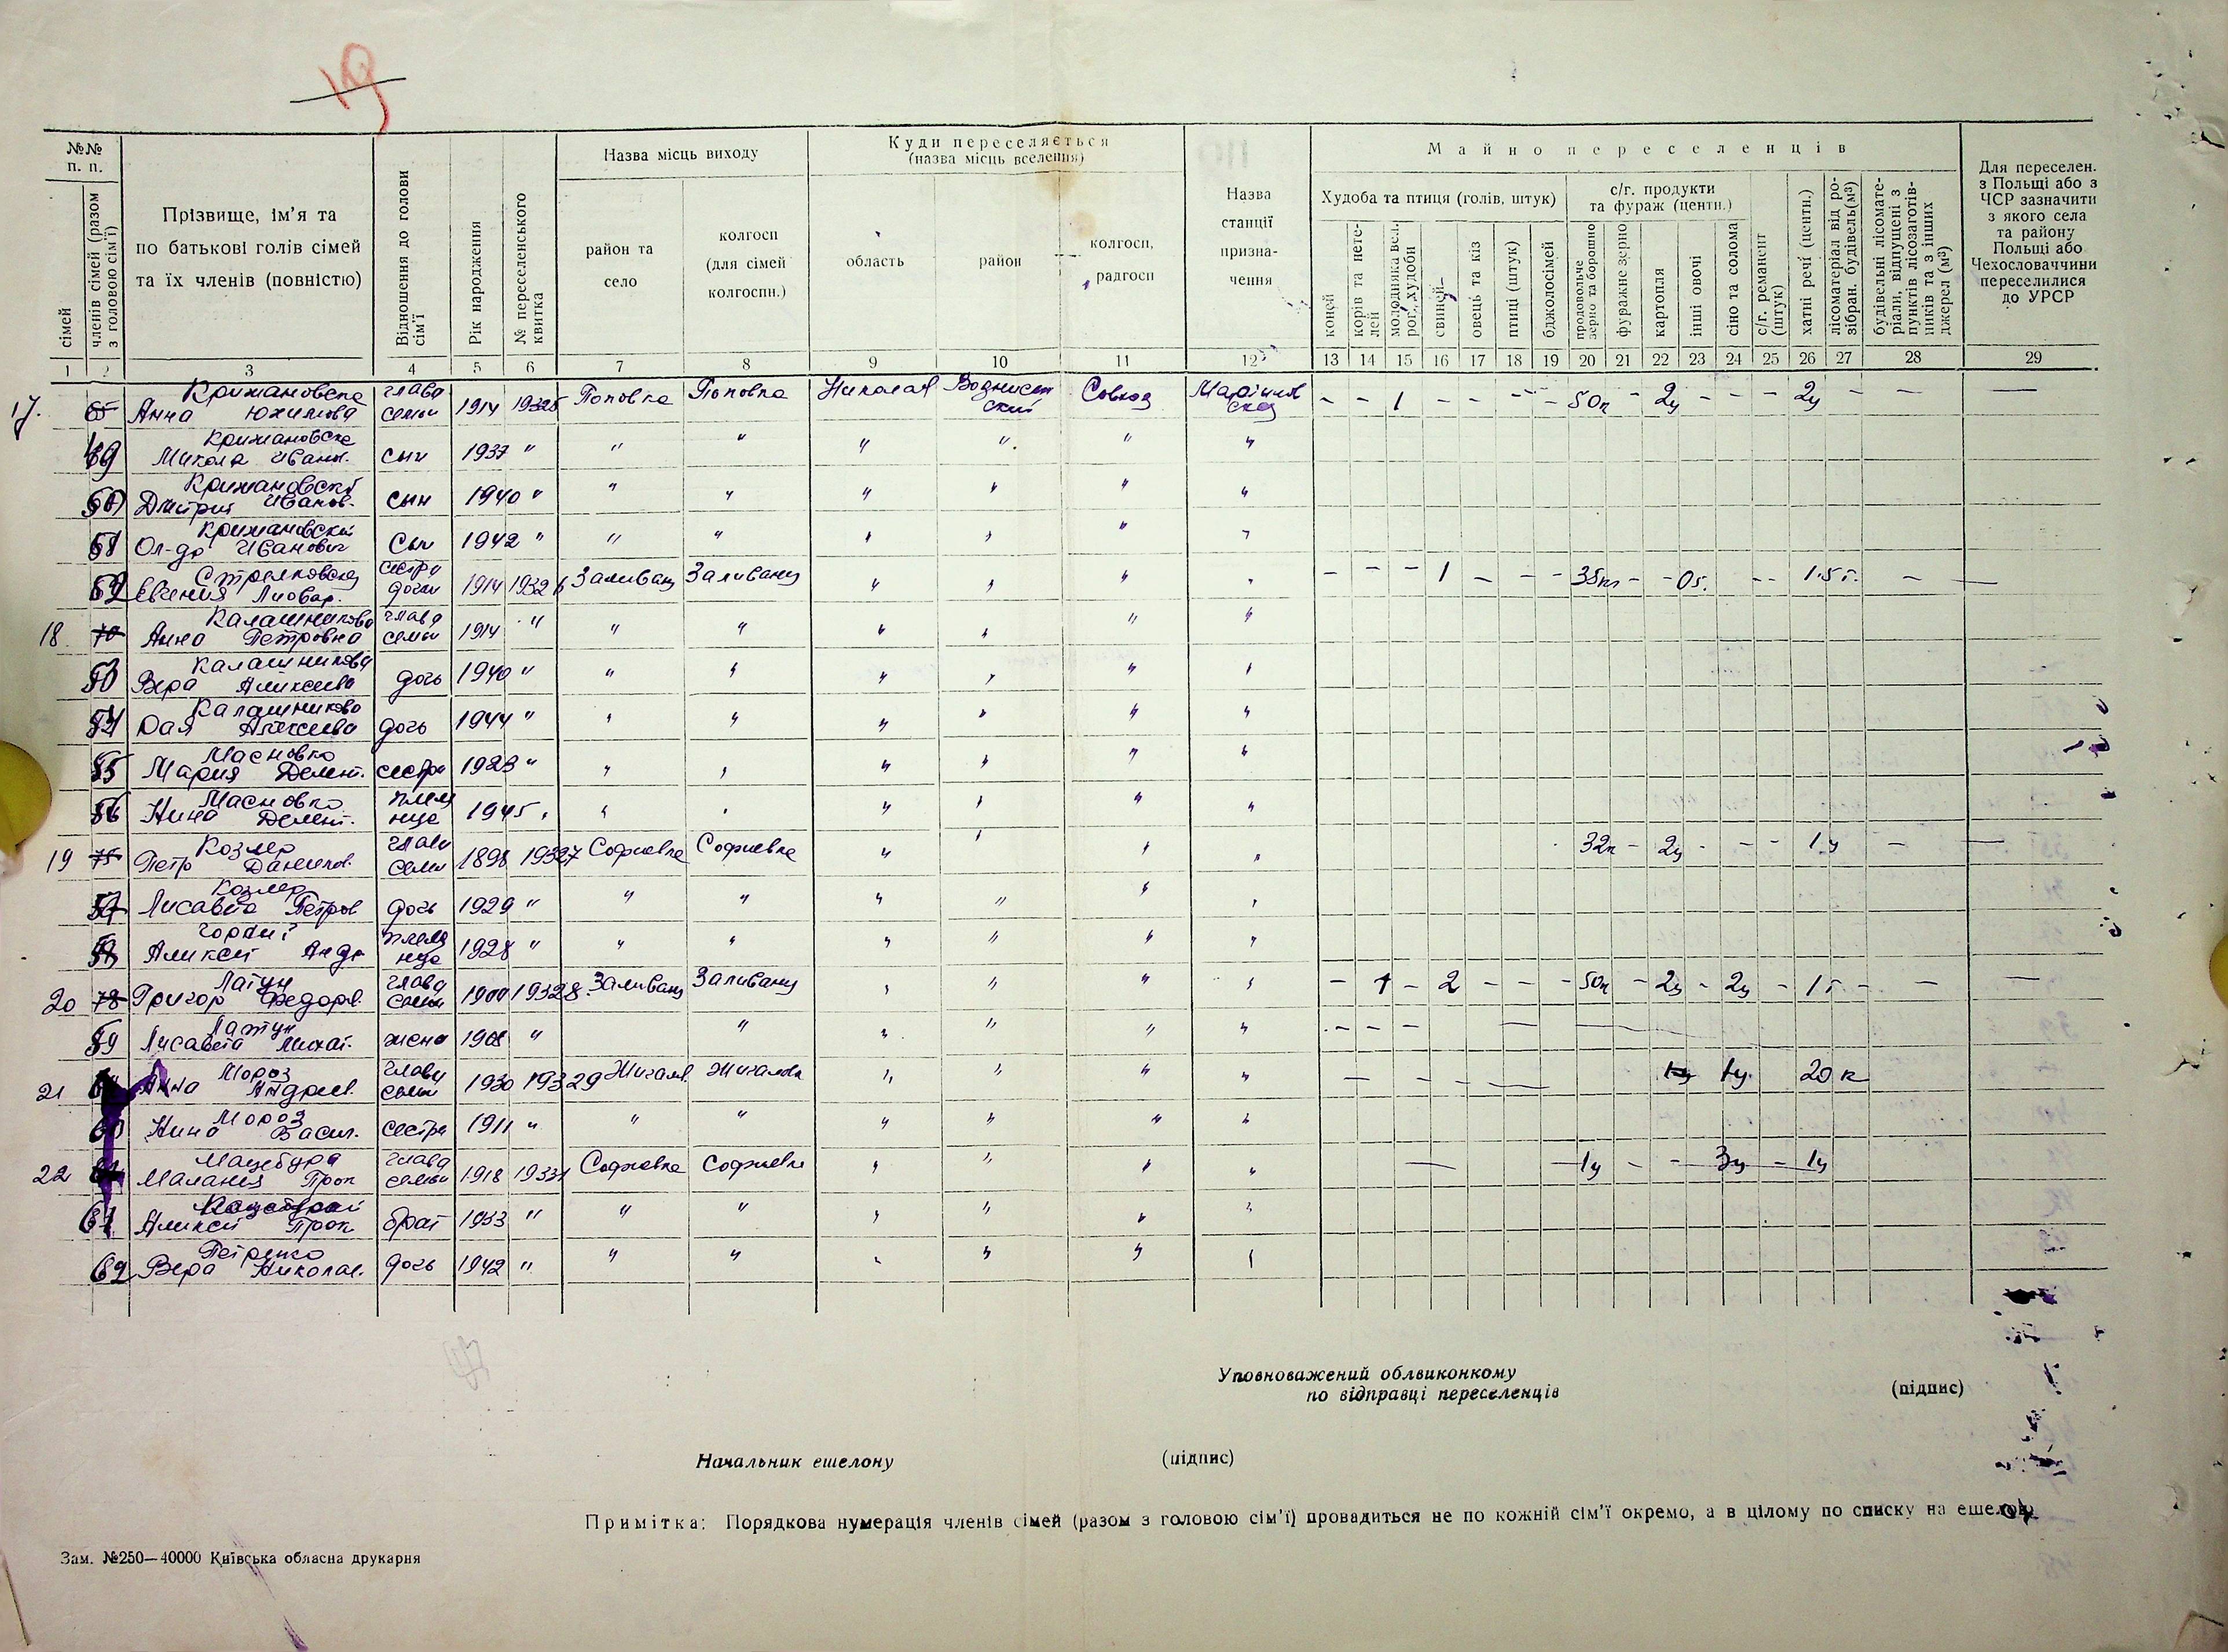 19
№№ п. п.
сімей
членів сімей (разом з головою сім'ї)
Прізвище, ім'я та по батькові голів сімей та їх членів (повністю)
Відношення до голови сім'ї
Рік народження
№ переселенського квитка
Назва місць виходу
район та село
колгосп (для сімей колгоспн.)
Куди переселяється (назва місць вселення)
область
район
колгосп, радгосп
Назва станції призначення
Майно переселенців
Худоба та птиця (голів, штук)
коней
корів та нетелей
молодняка вел. рог. худоби
свиней
овець та кіз
птиці (штук)
бджолосімей
с/г. продукти та фураж (центн.)
продовольче зерно та борошно
фуражне зерно
картопля
інші овочі
сіно та солома
с/г. реманент (штук)
хатні речі (центн.)
лісоматеріал від розібран. будівель (м³)
будівельні лісоматеріали, відпущені з пунктів лісозаготівників та з інших джерел (м³)
Для переселен. з Польщі або з ЧСР зазначити з якого села та району Польщі або Чехословаччини переселилися до УРСР
1 2 3 4 5 6 7 8 9 10 11 12 13 14 15 16 17 18 19 20 21 22 23 24 25 26 27 28 29
17. Крижановска Анна Юхимовна глава семьи 1914 19325 Поповка Поповка Николаев Совхоз — — 1 — — — — 50п — 2ц — — — 2ц — — —
Крижановске Микола Иван. сын 1937 " " " " " " "
Крижановский Дмитрий Иванов. сын 1940 " " " " " " "
Крижановский Ол-др Иванович сын 1942 " " " " " " "
Евгения 1914 19326 Заливанщ Заливанщ " " " " — — — 1 — — — — — 1.5 — —
18 Калашникова Анна Петровна глава семьи 1914 " " " " " " "
Калашникова Вера Алексеева дочь 1940 " " " " " " "
Калашникова Алексеева дочь 1944 " " " " " " "
55 Масновко Мария сестра 1923 " " " " " " "
56 Масновко Нина 1945 " " " " " " "
19 Козлер Петр Данилов. глава семьи 1898 19327 Софиевка Софиевка " " " " 32п — 2ц — — — 1ц — —
57 Козлер Лисавета Петров дочь 1929 " " " " " " "
Алексей Андр 1928 " " " " " " "
20 Латун Григор Федоров. глава семьи 1900 19328 Заливанщ Заливанщ " " " " — 1 — 2 — — — 50п — 2ц — 2ц — 1 — — —
59 Латун Лисавета Михай. жена 1908 " " " " " " — — — — —
21 Мороз Анна Андреев. глава семьи 1930 19329 Жигалов. Жигалов " " " " — — — — 1ц 20 к
60 Мороз Нина Васил. сестра 1911 " " " " " " "
22 Мацебура Малания Прок глава семьи 1918 19331 Софиевка Софиевка " " " " — 1ц — — 3ц — 1ц
61 Алексей Прок брат 1933 " " " " " " "
62 Петренко Вера Николае. дочь 1942 " " " " " " "
Уповноважений облвиконкому
по відправці переселенців (підпис)
Начальник ешелону (підпис)
Примітка: Порядкова нумерація членів сімей (разом з головою сім'ї) провадиться не по кожній сім'ї окремо, а в цілому по списку на ешелон
Зам. №250—40000 Київська обласна друкарня